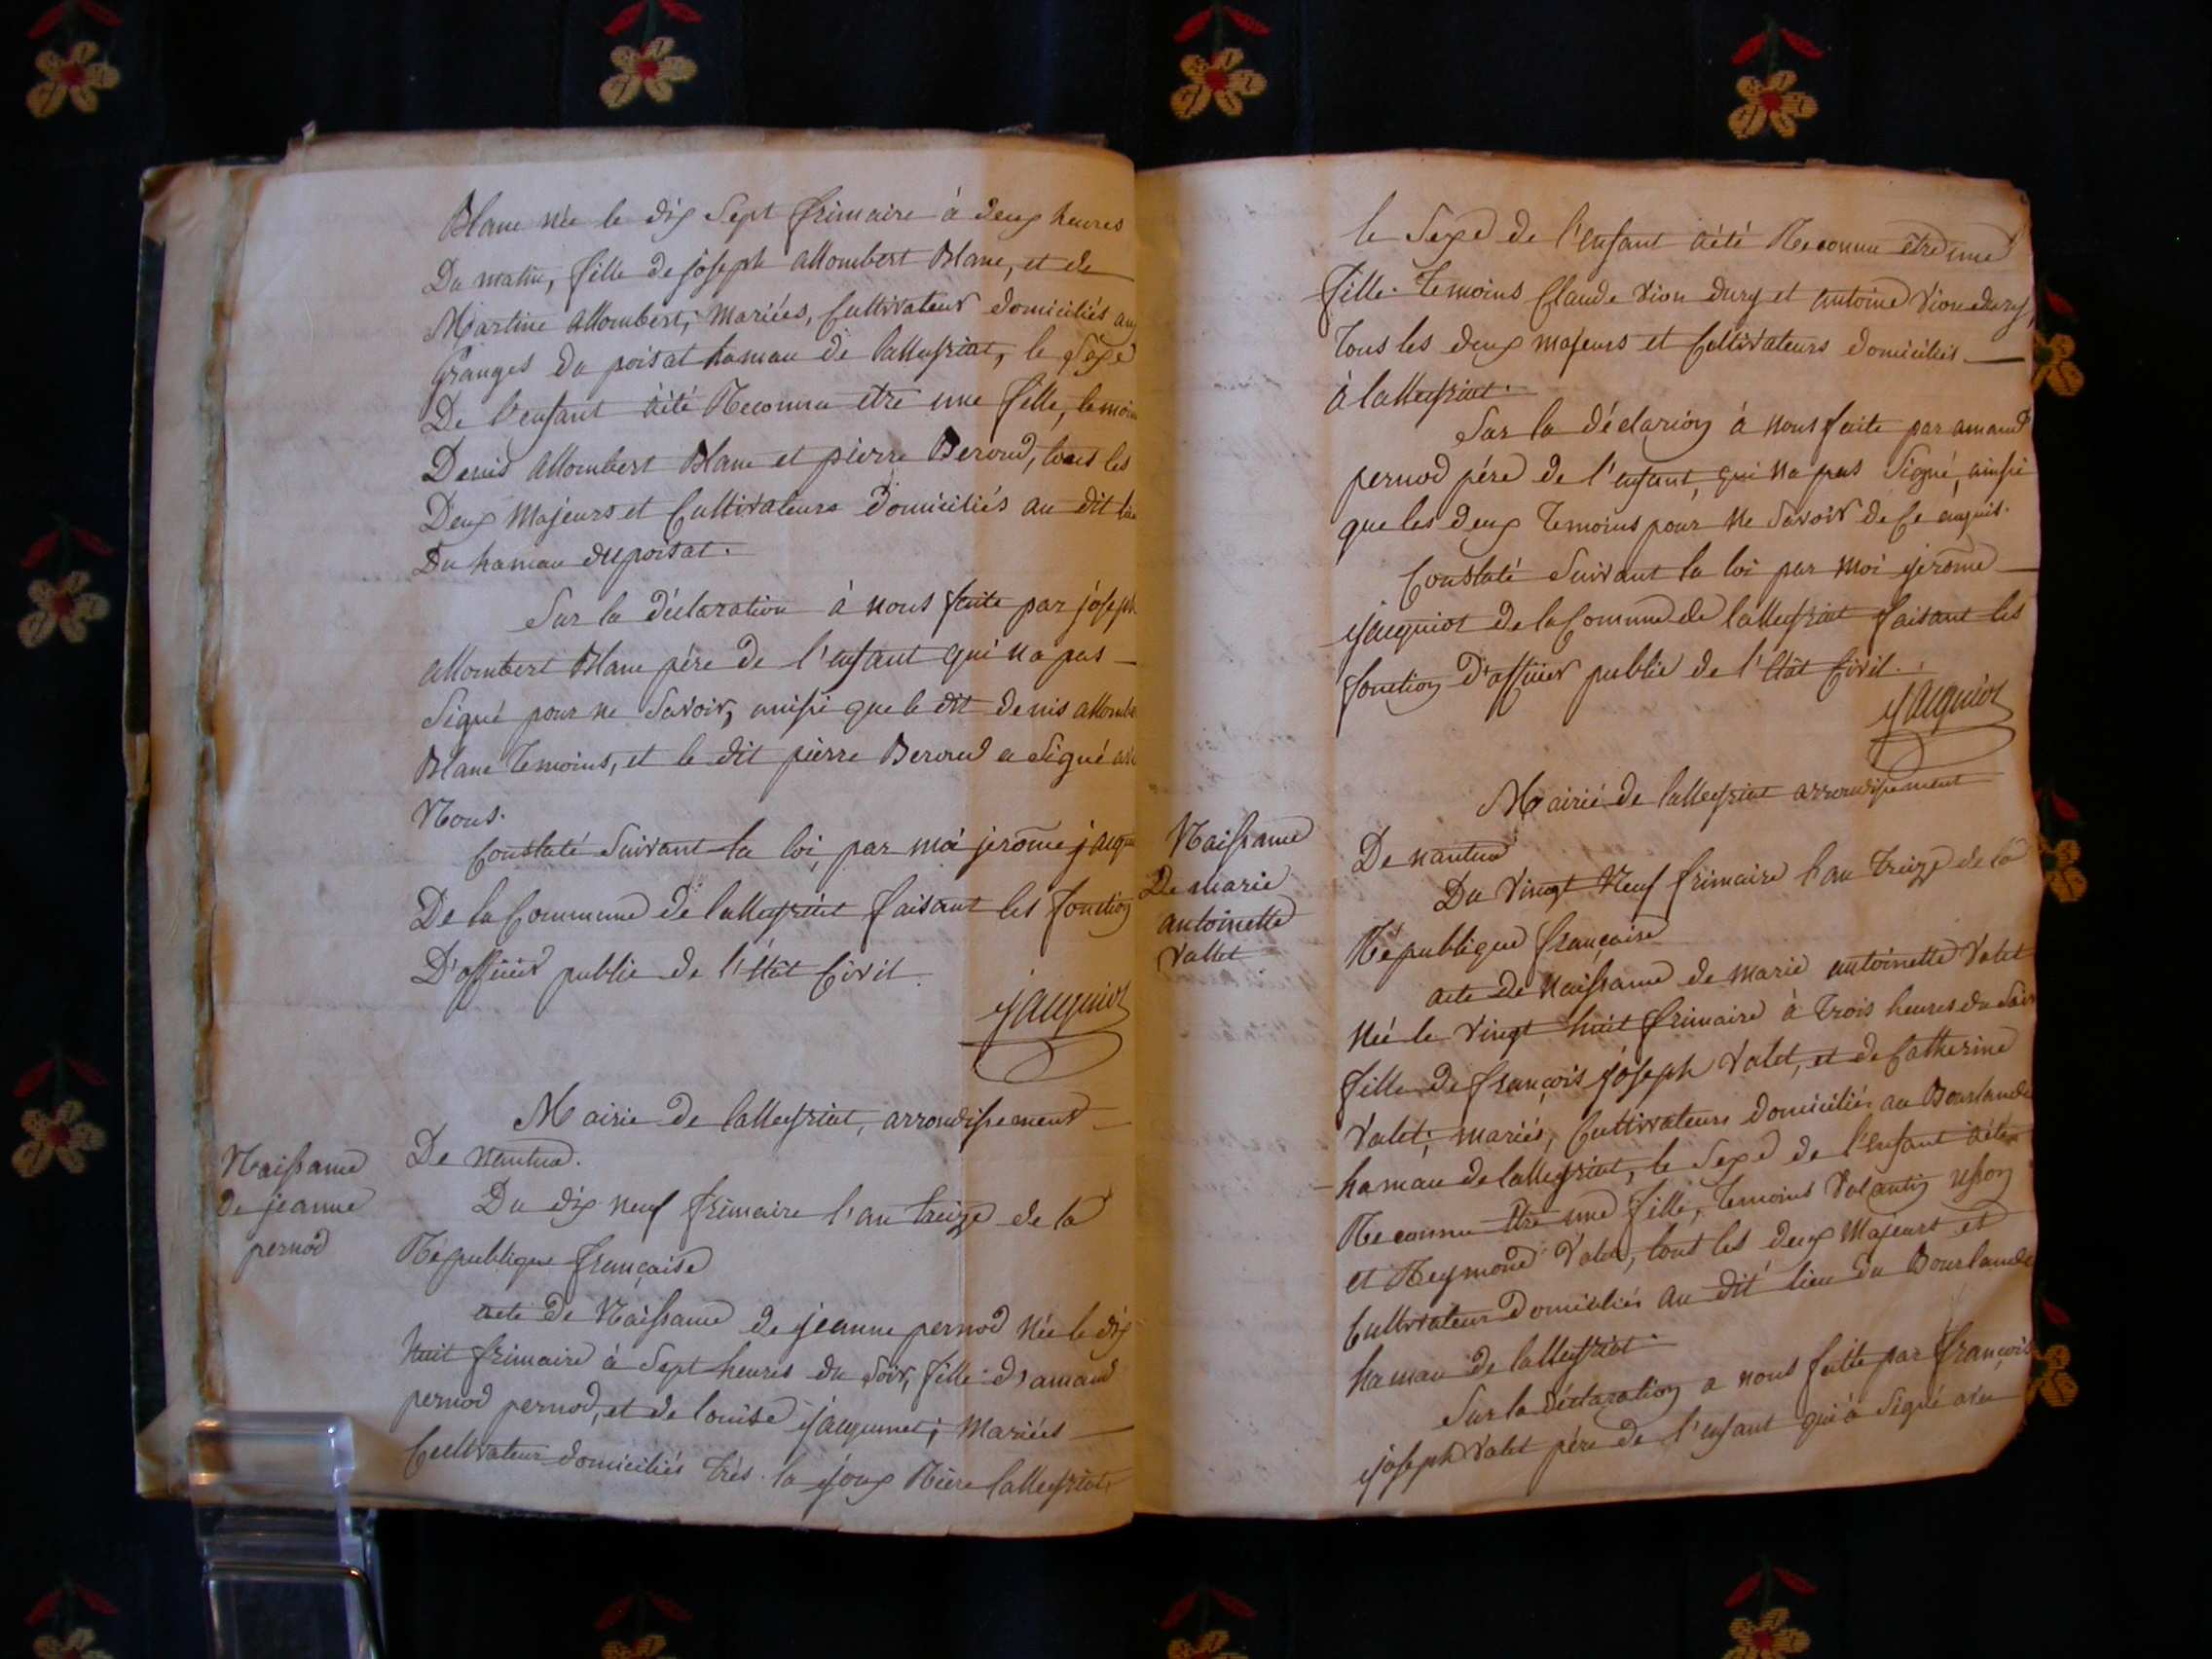 Blanc née le dix Sept frimaire à deux heures
Du matin, fille de joseph allombert Blanc, et de
Martine allombert, mariées, Cultivateur domiciliés au
Granges du poisat hamau de lalleyriat, le Sexe
De l'enfant àété Reconnu etre une fille, temoins
Denis allombert Blanc et pierre Beroud, tous les
Deux Majeurs et Cultivateurs domiciliés au dit lieu
Du hamau du poisat.
Sur la déclaration à nous faite par joseph
allombert Blanc père de l'enfant qui na pas
Signé pour ne Savoir, ainsi que le dit denis allombe
Blanc temoins, et le dit pierre Beroud a Signé avec
Nous.
Constaté Suivant la loi, par moi jerome jacqu
De la Commune de lalleyriat faisant les fonction
D'officier public de l'État Civil.
jacquiot
Mairie de lalleyriat, arrondissement
De nantua.
Naissance
de jeanne
pernod
Du dix neuf frimaire l'an treize de la
République française
acte de Naissance de jeanne pernod née le dix
huit frimaire à Sept heures du soir, fille d'amand
pernod pernod, et de louise jacquemet, mariées
Cultivateur domiciliés très la joux Nière lalleyriat
le Sexe de l'enfant àété Reconnu être une
fille. temoins Claude vion dury et antoine vion dury,
tous les deux majeurs et Cultivateurs domiciliés
à lalleyriat.
Sur la déclarion à nous faite par amand
pernod père de l'enfant, qui na pas Signé, ainsi
que les deux temoins pour ne Savoir de Ce enquis.
Constaté Suivant la loi par moi jerome
jacquiot de la Commune de lalleyriat faisant les
fonction d'officier public de l'État Civil.
jacquiot
Mairie de lalleyriat arrondissement
De nantua
Naissance
De marie
antoinette
vallet
Du vingt Neuf frimaire l'an treize de la
République française
acte de Naissance de marie antoinette valet
Née le vingt huit frimaire à trois heures du Soir
fille de françois joseph valet, et de Catherine
valet, mariés, Cultivateurs domiciliés au Bourlande
hamau de lalleyriat, le Sexe de l'enfant àété
Reconnu être une fille, temoins valantin
et Reymond valet, tout les deux majeurs et
Cultivateur domiciliés au dit lieu du Bourlande
hamau de lalleyriat.
Sur la déclaration a nous faitte par françois
joseph valet père de l'enfant qui à Signé avec